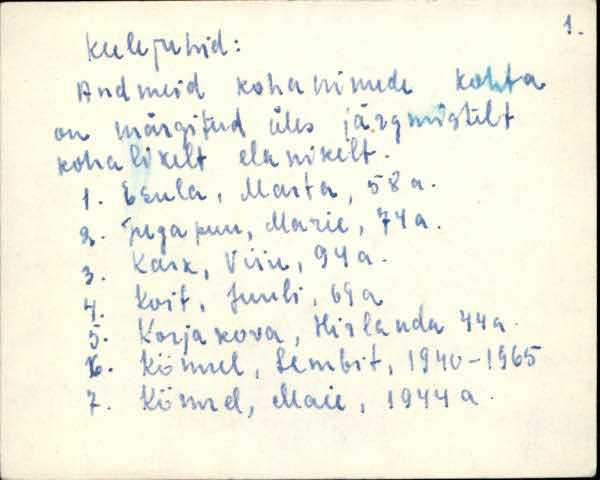 1.
Keelejuhid:
Andmeid kohanimede kohta
on märgitud üles järgmistelt
kohalikelt elanikelt.
1. Eenla, Marta, 58 a.
2. Jugapuu, Marie, 74 a.
3. Kask, Viiu, 94 a.
4. Koit, Juuli, 69 a
5. Korjakova, Hislanda 44 a.
6. Kömmel, Lembit, 1940-1965
7. Kömmel, Maie, 1944 a.